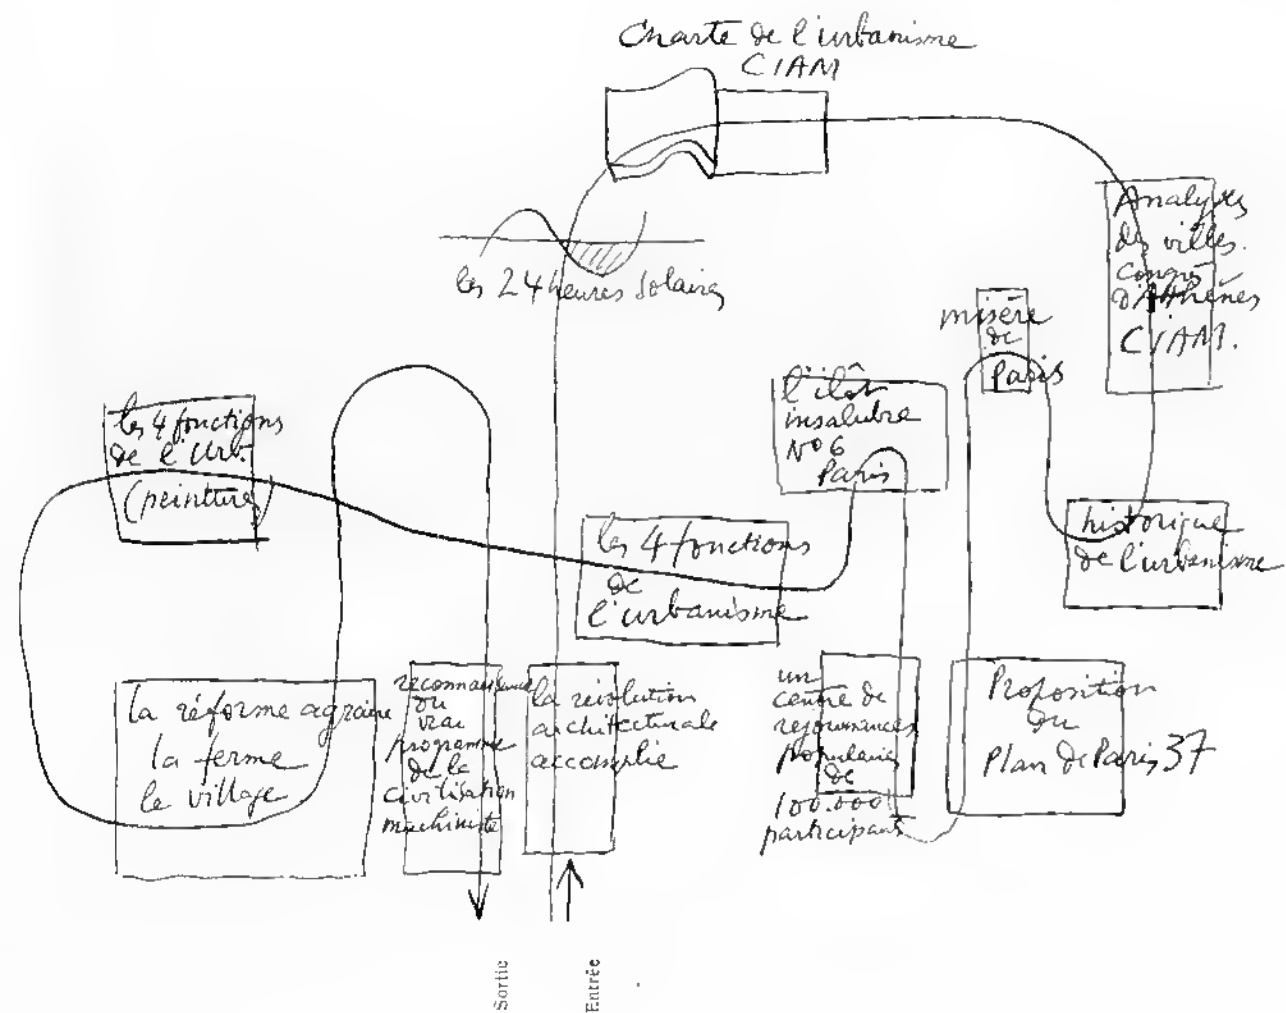 Charte de l'urbanisme
CIAM
Analyses
des villes.
congrès
d'Athènes
CIAM.
les 24 heures solaires
misère
de
Paris
l'ilôt
insalubre
N° 6
Paris
les 4 fonctions
de l'Urb.
(peinture)
les 4 fonctions
de
l'urbanisme
historique
de l'urbanisme
la réforme agraire
la ferme
le village
reconnaissance
du
vrai
programme
de la
civilisation
machiniste
la révolution
architecturale
accomplie
un
centre de
réjouissances
populaires
de
100.000
participants
Proposition
du
Plan de Paris 37
Sortie
Entrée